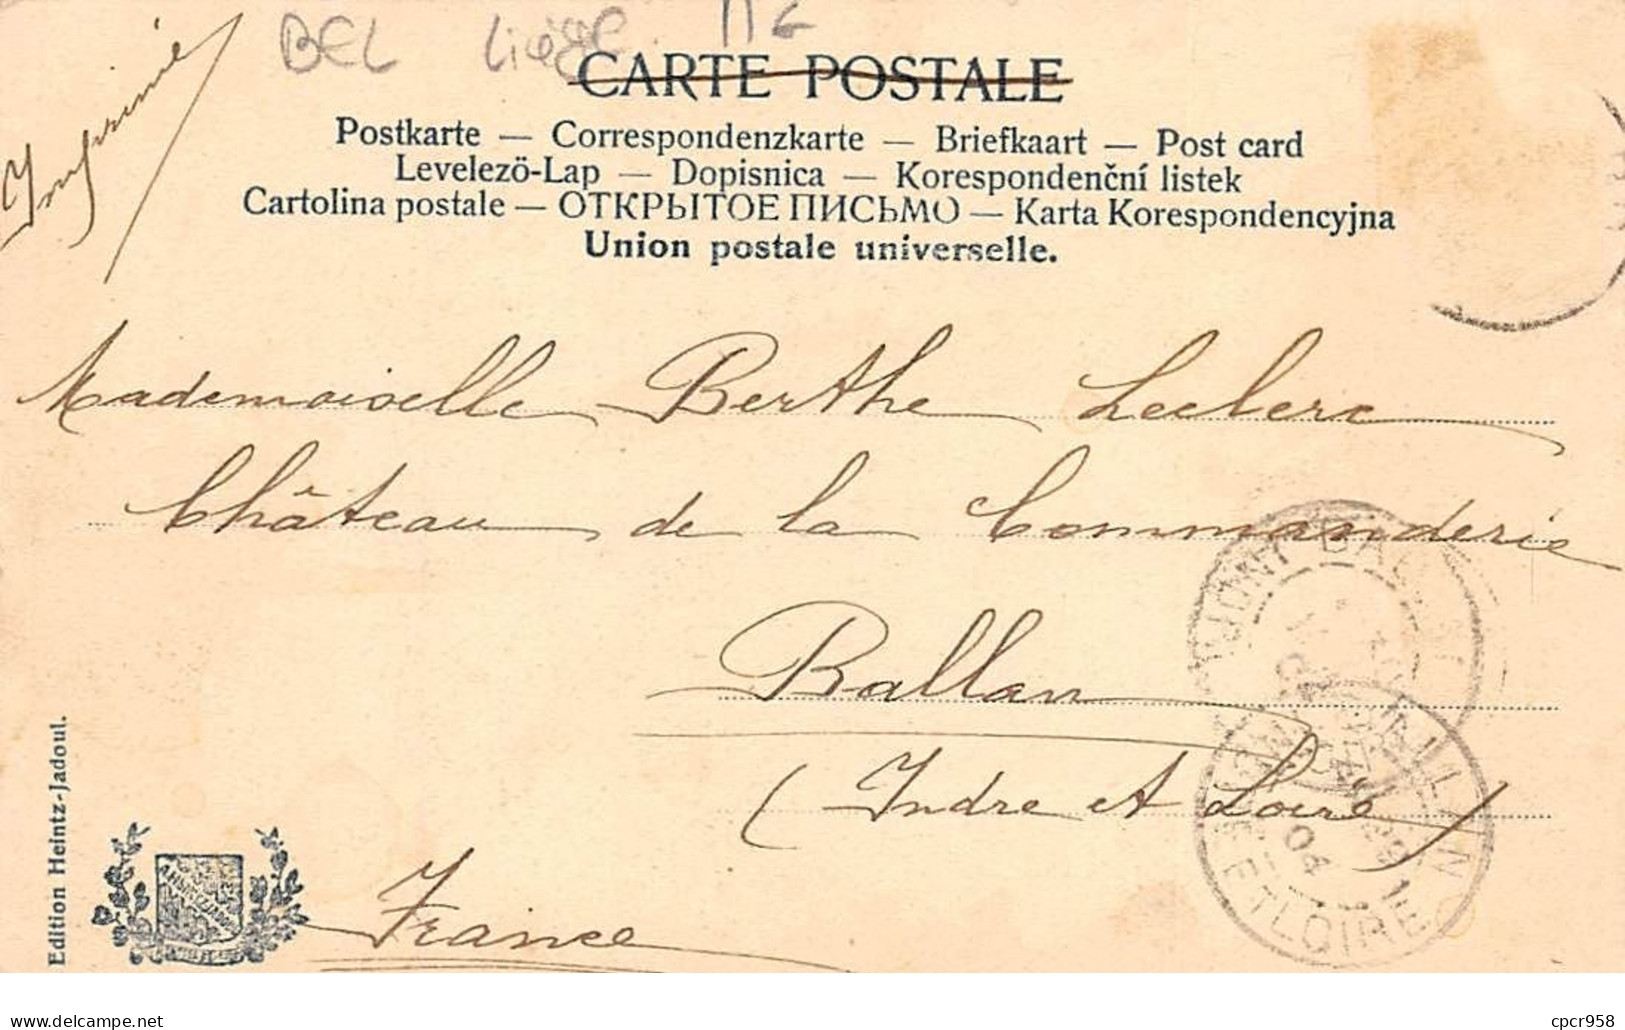 BEL Liège 11G
Imprimé
CARTE POSTALE
Postkarte — Correspondenzkarte — Briefkaart — Post card
Levelezö-Lap — Dopisnica — Korespondenční listek
Cartolina postale — ОТКРЫТОЕ ПИСЬМО — Karta Korespondencyjna
Union postale universelle.
Mademoiselle Berthe Leclerc
Château de la Commanderie
Ballan
(Indre et Loire)
France
Edition Heintz-Jadoul.
04
ET LOIRE
cpcr958